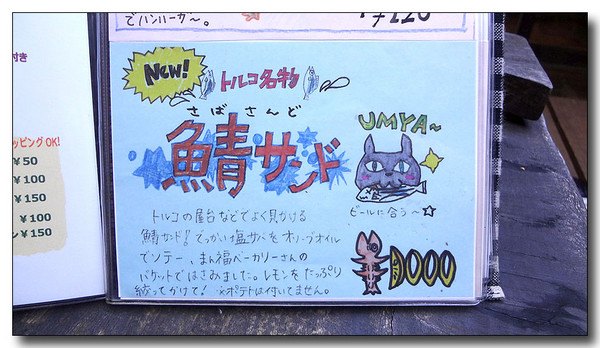 でハンバーガー〜。
New!
トルコ名物
さばさんど
鯖サンド
UMYA〜
ビールに合う〜☆
トルコの屋台などでよく見かける
鯖サンド！でっかい塩サバをオリーブオイル
でソテー、まん福ベーカリーさんの
バゲットではさみました。レモンをたっぷり
絞ってかけて！※ポテトは付いてません。
付き
ッピングOK!
¥50
¥100
¥150
¥100
ン¥150